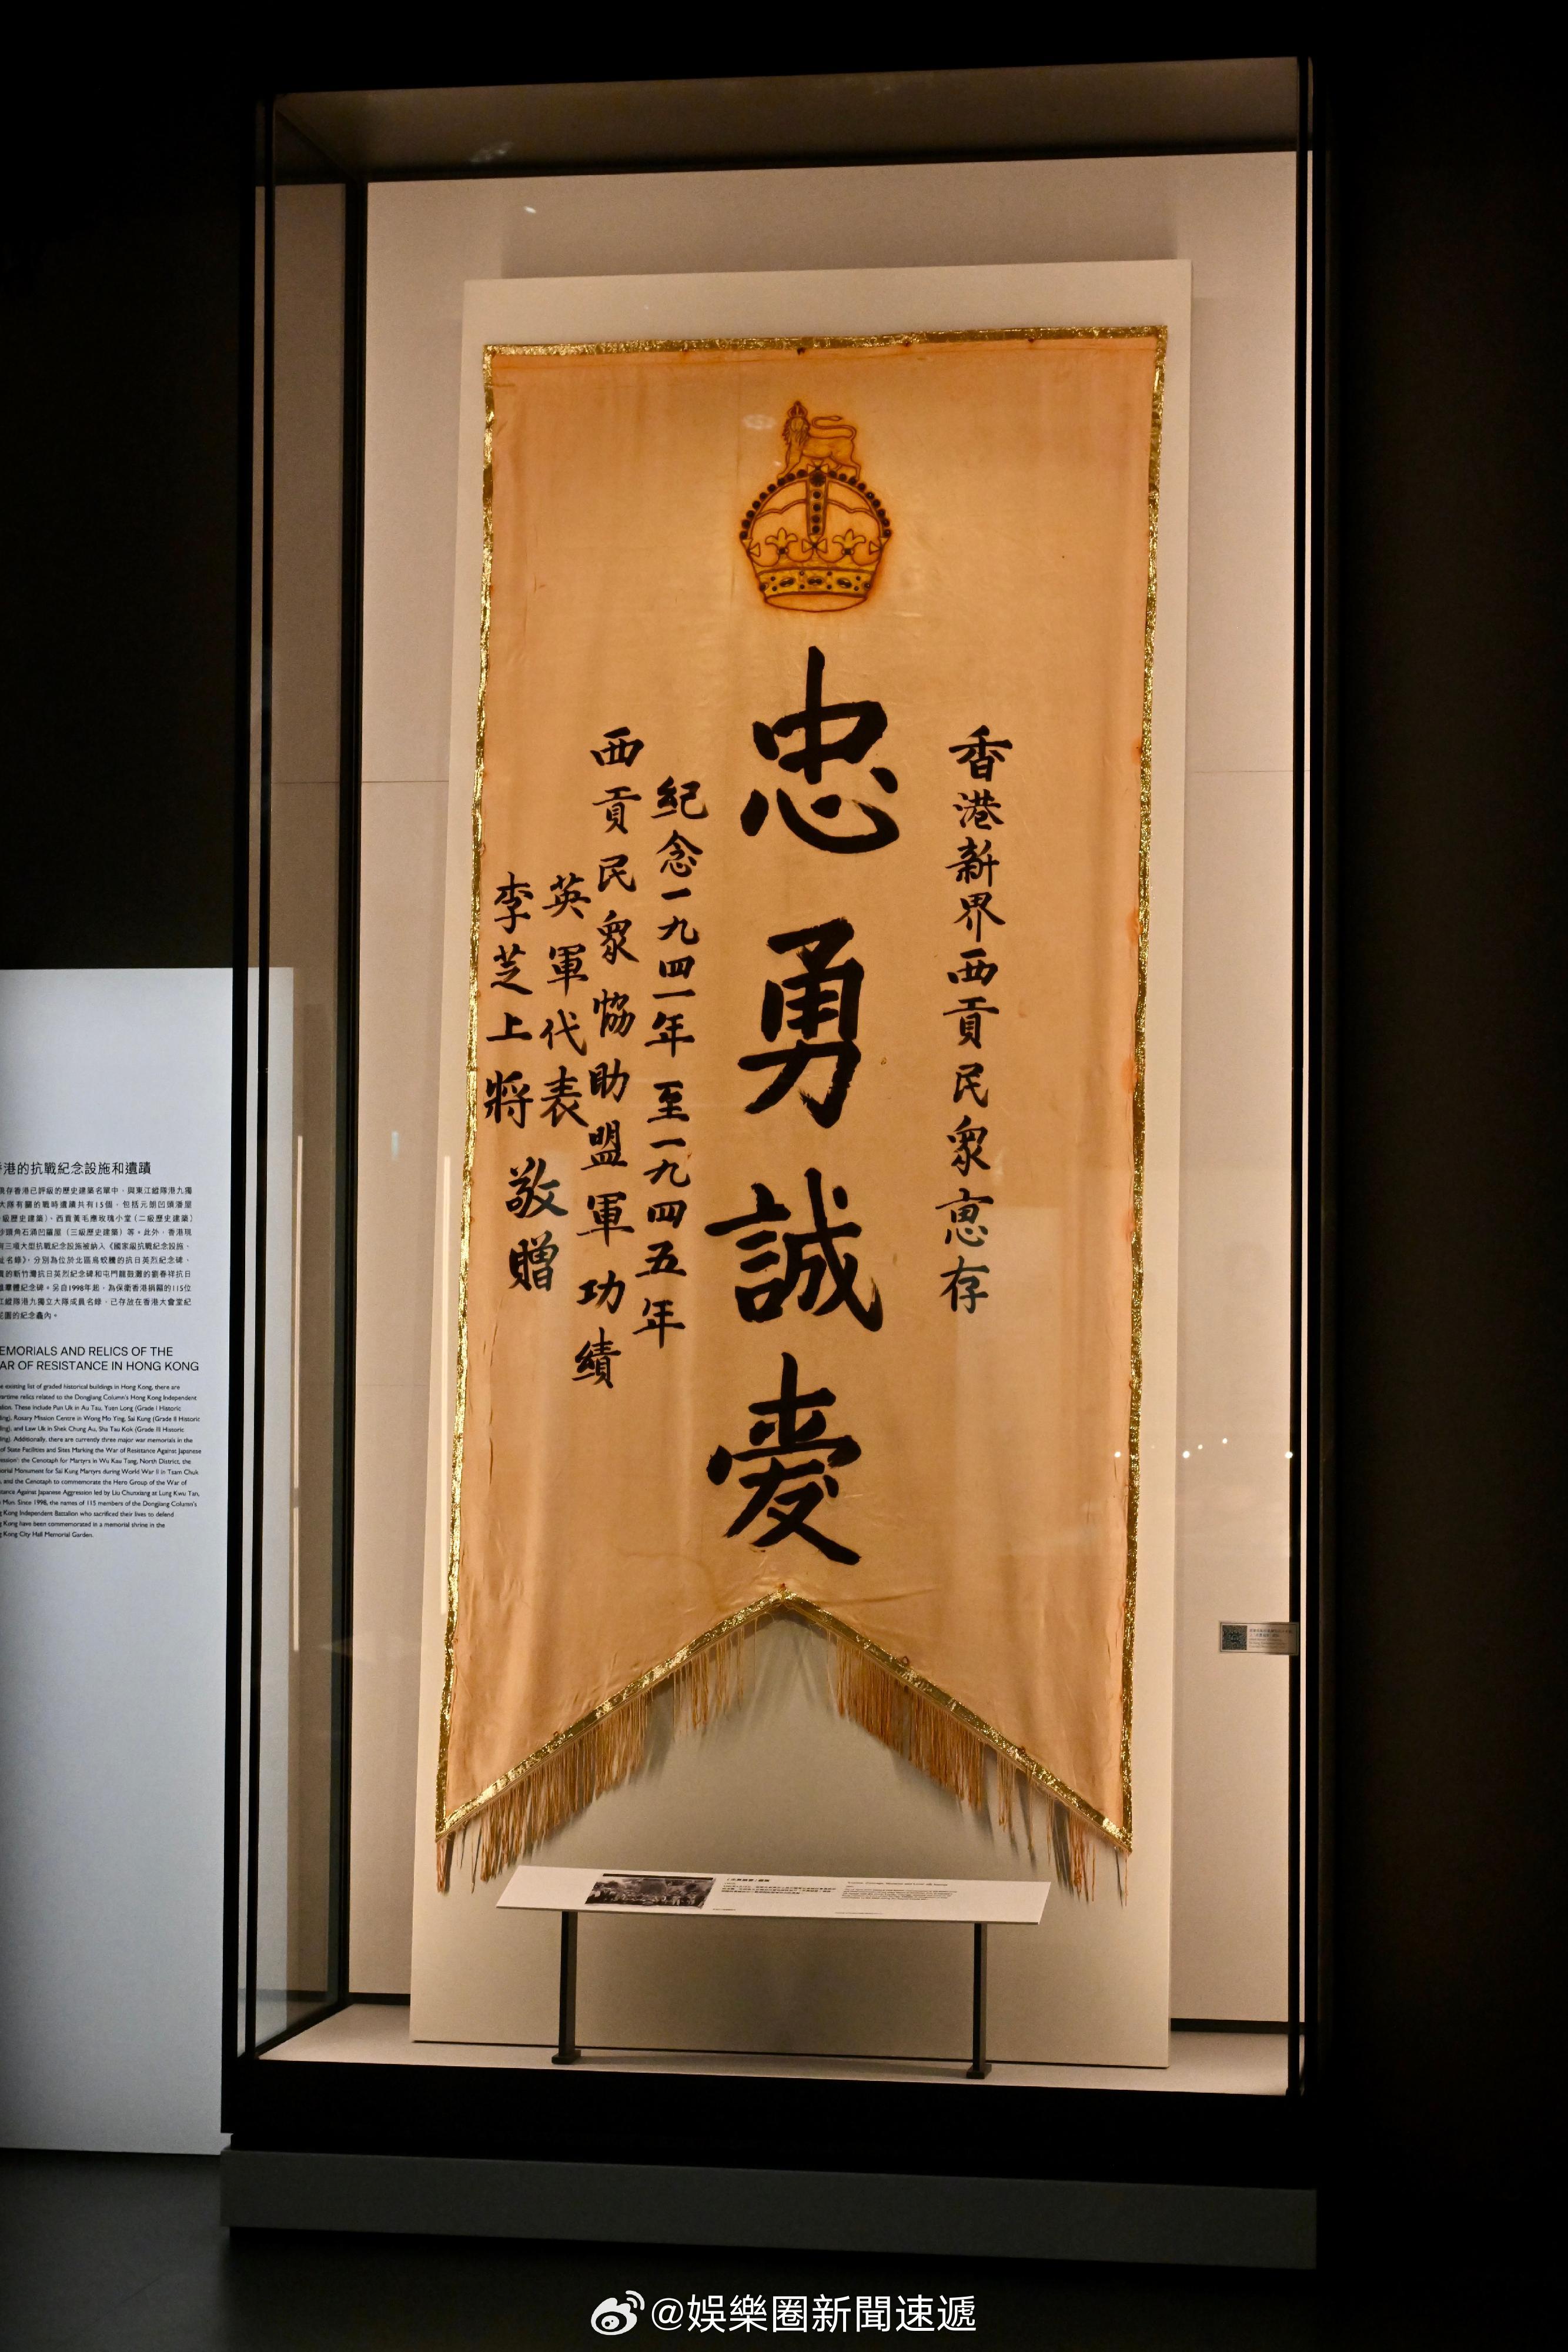 香港新界西貢民衆惠存
忠勇誠愛
紀念一九四一年至一九四五年
西貢民衆恊助盟軍功績
英軍代表
李芝上將
敬贈
港的抗戰紀念設施和遺蹟
現存香港已評級的歷史建築名單中，與東江縱隊港九獨
大隊有關的戰時遺蹟共有15個，包括元朗凹頭潘屋
級歷史建築）、西貢黃毛應玫瑰小堂（二級歷史建築）
沙頭角石涌凹羅屋（三級歷史建築）等。此外，香港現
有三項大型抗戰紀念設施被納入《國家級抗戰紀念設施、
址名錄》，分別為位於北區烏蛟騰的抗日英烈紀念碑、
貢的斬竹灣抗日英烈紀念碑和屯門龍鼓灘的劉春祥抗日
雄羣體紀念碑。另自1998年起，為保衛香港捐軀的115位
江縱隊港九獨立大隊成員名錄，已存放在香港大會堂紀
花園的紀念龕內。
EMORIALS AND RELICS OF THE
AR OF RESISTANCE IN HONG KONG
e existing list of graded historical buildings in Hong Kong, there are
artime relics related to the Dongjiang Column's Hong Kong Independent
alion. These include Pun Uk in Au Tau, Yuen Long (Grade I Historic
ling), Rosary Mission Centre in Wong Mo Ying, Sai Kung (Grade II Historic
ling), and Law Uk in Shek Chung Au, Sha Tau Kok (Grade III Historic
ling). Additionally, there are currently three major war memorials in the
of State Facilities and Sites Marking the War of Resistance Against Japanese
ession': the Cenotaph for Martyrs in Wu Kau Tang, North District, the
orial Monument for Sai Kung Martyrs during World War II in Tsam Chuk
, and the Cenotaph to commemorate the Hero Group of the War of
stance Against Japanese Aggression led by Liu Chunxiang at Lung Kwu Tan,
Mun. Since 1998, the names of 115 members of the Dongjiang Column's
g Kong Independent Battalion who sacrificed their lives to defend
g Kong have been commemorated in a memorial shrine in the
g Kong City Hall Memorial Garden.
@娛樂圈新聞速遞